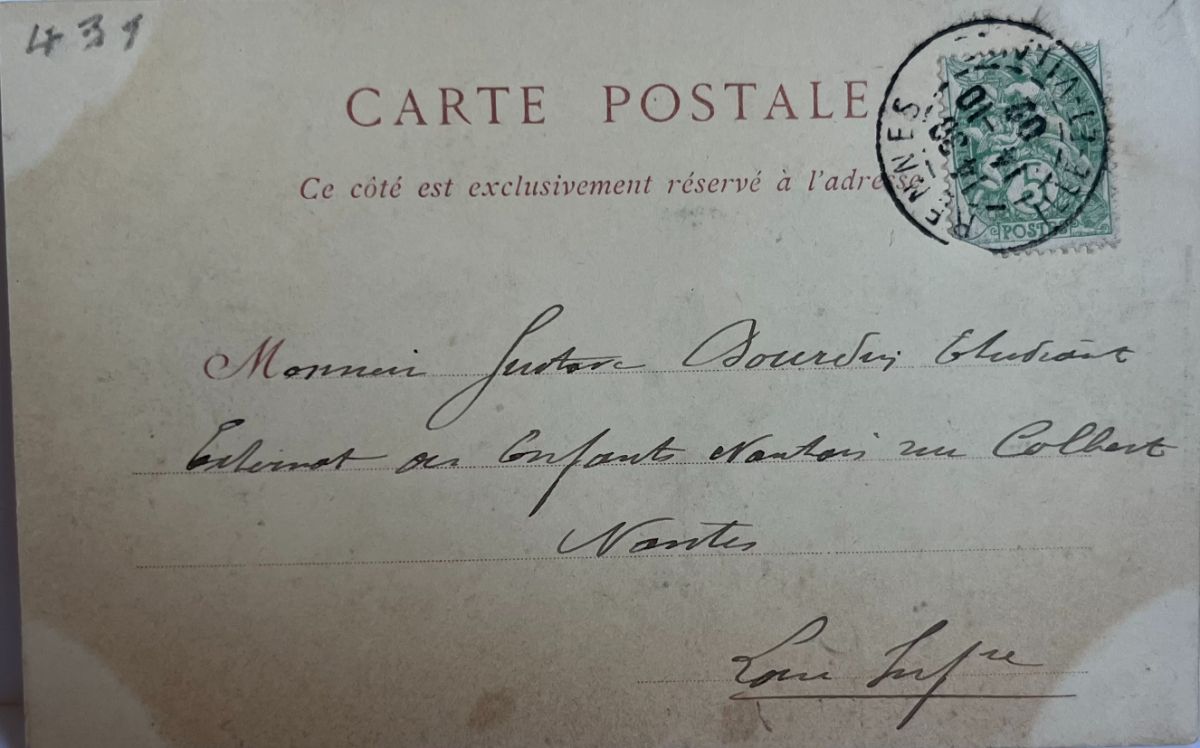 431
CARTE POSTALE
Ce côté est exclusivement réservé à l'adresse
RENNES ILLE-ET-VILAINE
5
POSTES
Monsieur Gustave Bourdin Etudiant
Externat des Enfants Nantais rue Colbert
Nantes
Loire Infre